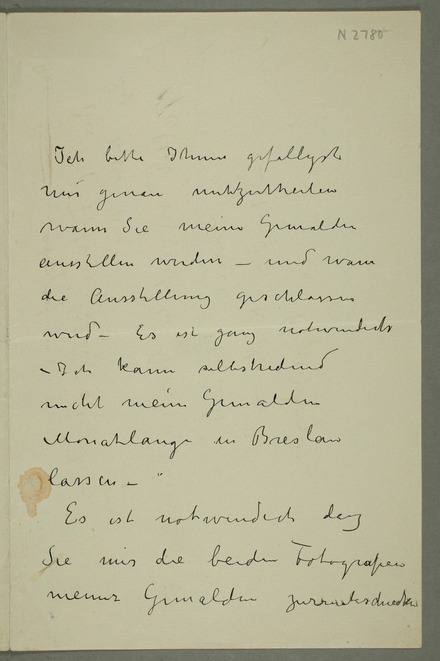 N 2785
Ich bitte Ihnen gefälligst
mir genau mitzutheilen
wann Sie meine Gemälden
ausstellen werden – und wann
die Ausstellung geschlossen
wird – Es ist ganz notwendich
– Ich kann selbstredend
nicht meine Gemälden
Monatlange in Breslau
lassen – "
Es ist notwendich daz
Sie mir die beiden Fotografien
meiner Gemälden zurückschicken